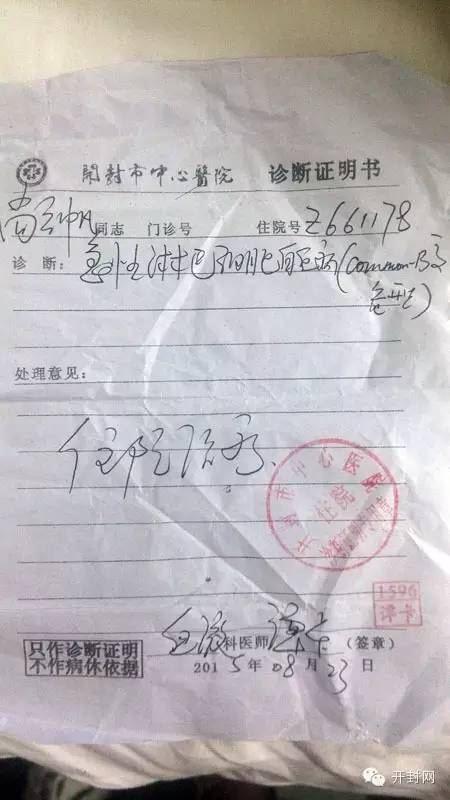 開封市中心醫院 诊断证明书
尚 同志 门诊号 住院号 Z661178
诊 断：急性淋巴细胞白血病(Common-B系
型)
处理意见：
住院治疗.
开封市中心医院
住院
1596
谭卡
血液科医师 谭卡 (签章)
只作诊断证明
不作病休依据
2015年08月23日
开封网